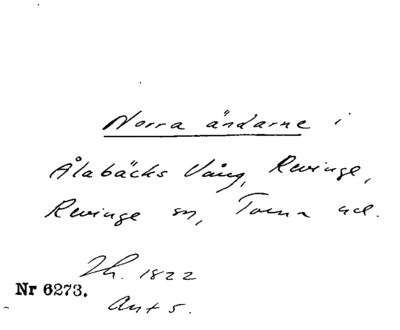 Norra ändarne i
Ålabäcks Vång, Revinge,
Revinge sn, Torna hd.
Zh. 1822
Nr 6273.
Ant 5.